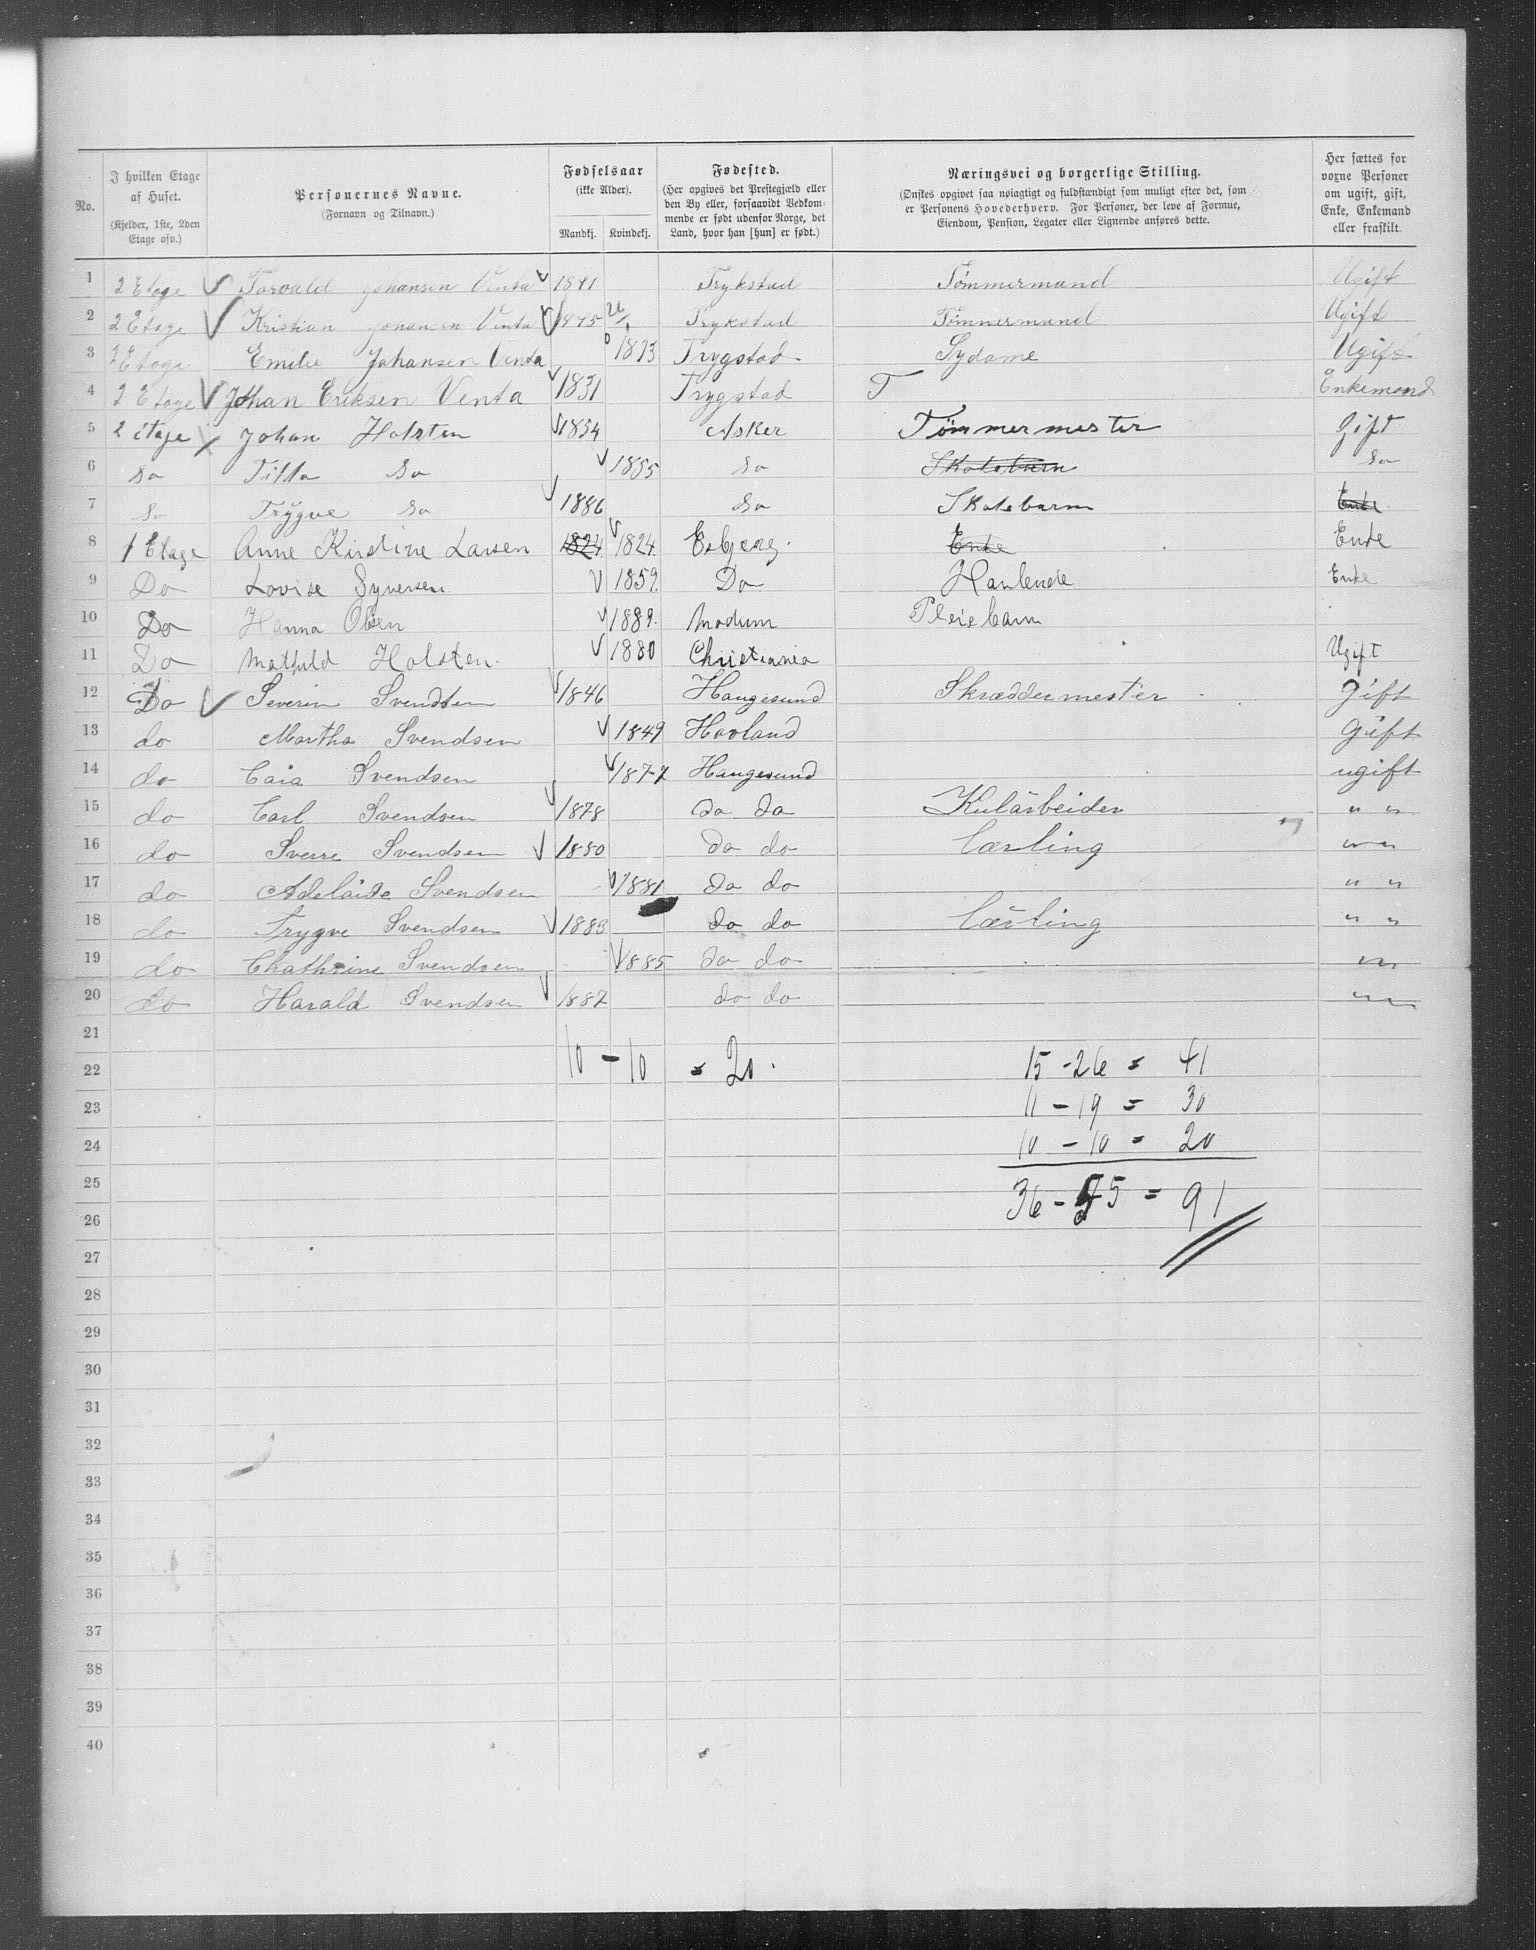 No. I hvilken Etage af Huset. (Kjelder, 1ste, 2den Etage osv.) Personernes Navne. (Fornavn og Tilnavn.) Fødselsaar (ikke Alder). Mandkj. Kvindekj. Fødested. (Her opgives det Præstegjæld eller den By eller, forsaavidt Vedkommende er født udenfor Norge, det Land, hvor han [hun] er født.) Næringsvei og borgerlige Stilling. (Ønskes opgivet saa nøiagtigt og fuldstændigt som muligt efter det, som er Personens Hovederhverv. For Personer, der leve af Formue, Eiendom, Pension, Legater eller Lignende anføres dette.) Her sættes for voxne Personer om ugift, gift, Enke, Enkemand eller fraskilt.
1 2 Etage Torvald Johansen Venta 1841 Trykstad Tømmermand Ugift
2 2 Etage Kristian Johansen Venta 1875 26/1 Trykstad Tømmermand Ugift
3 2 Etage Emilie Johansen Venta 1873 Trygstad Sydame Ugift
4 2 Etage Johan Eriksen Venta 1831 Trygstad T Enkemand
5 2 Etage Johan Holsten 1854 Asker Tømmermester Gift
6 do Tilla do 1855 do Skolebarn do
7 do Trygve do 1886 do Skolebarn Enke
8 1 Etage Anne Kirstine Larsen 1824 1824 Esbjerg. Enke Enke
9 Do Lovise Syversen 1859 Do Hanlende Enke
10 Do Hanna Olsen 1889 Modum Pleiebarn
11 Do Mathild Holsten. 1880 Christiania Ugift
12 Do Severin Svendsen 1846 Haugesund Skræddermester gift
13 do Martha Svendsen 1849 Havland gift
14 do Caia Svendsen 1877 Haugesund ugift
15 do Carl Svendsen 1878 do do Kulärbeider " "
16 do Sverre Svendsen 1880 do do Lærling " "
17 do Adelaide Svendsen 1881 do do " "
18 do Trygve Svendsen 1883 do do Lærling " "
19 do Chathrine Svendsen 1885 do do " "
20 do Harald Svendsen 1887 do do " "
21
22 10 - 10 = 20. 15 - 26 = 41
23 11 - 19 = 30
24 10 - 10 = 20
25 36 - 55 = 91
26
27
28
29
30
31
32
33
34
35
36
37
38
39
40